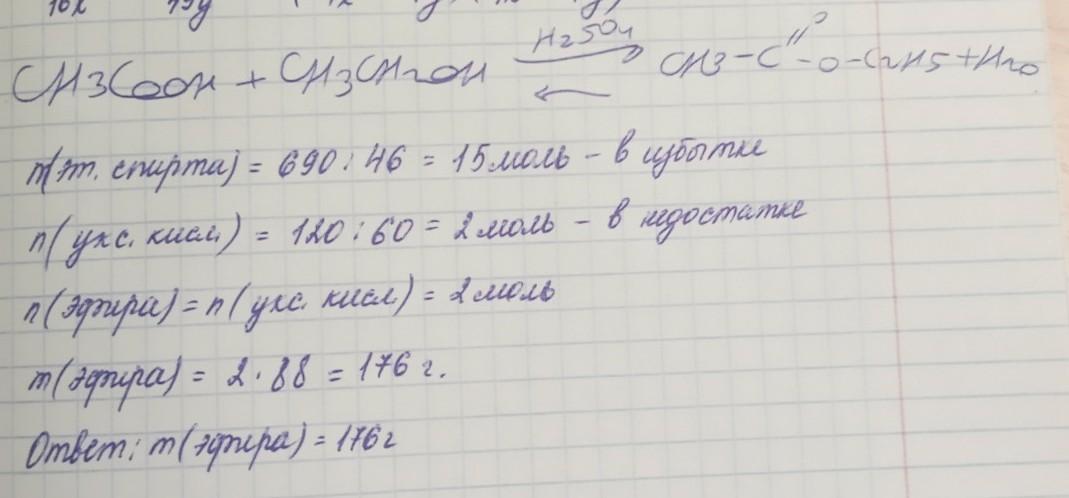 H2SO4
CH3COOH + CH3CH2OH ⇄ CH3-C=O-O-C2H5+H2O
n(эт. спирта) = 690 : 46 = 15 моль - в избытке
n(укс. кисл.) = 120 : 60 = 2 моль - в недостатке
n(эфира) = n(укс. кисл) = 2 моль
m(эфира) = 2 · 88 = 176 г.
Ответ: m(эфира) = 176 г